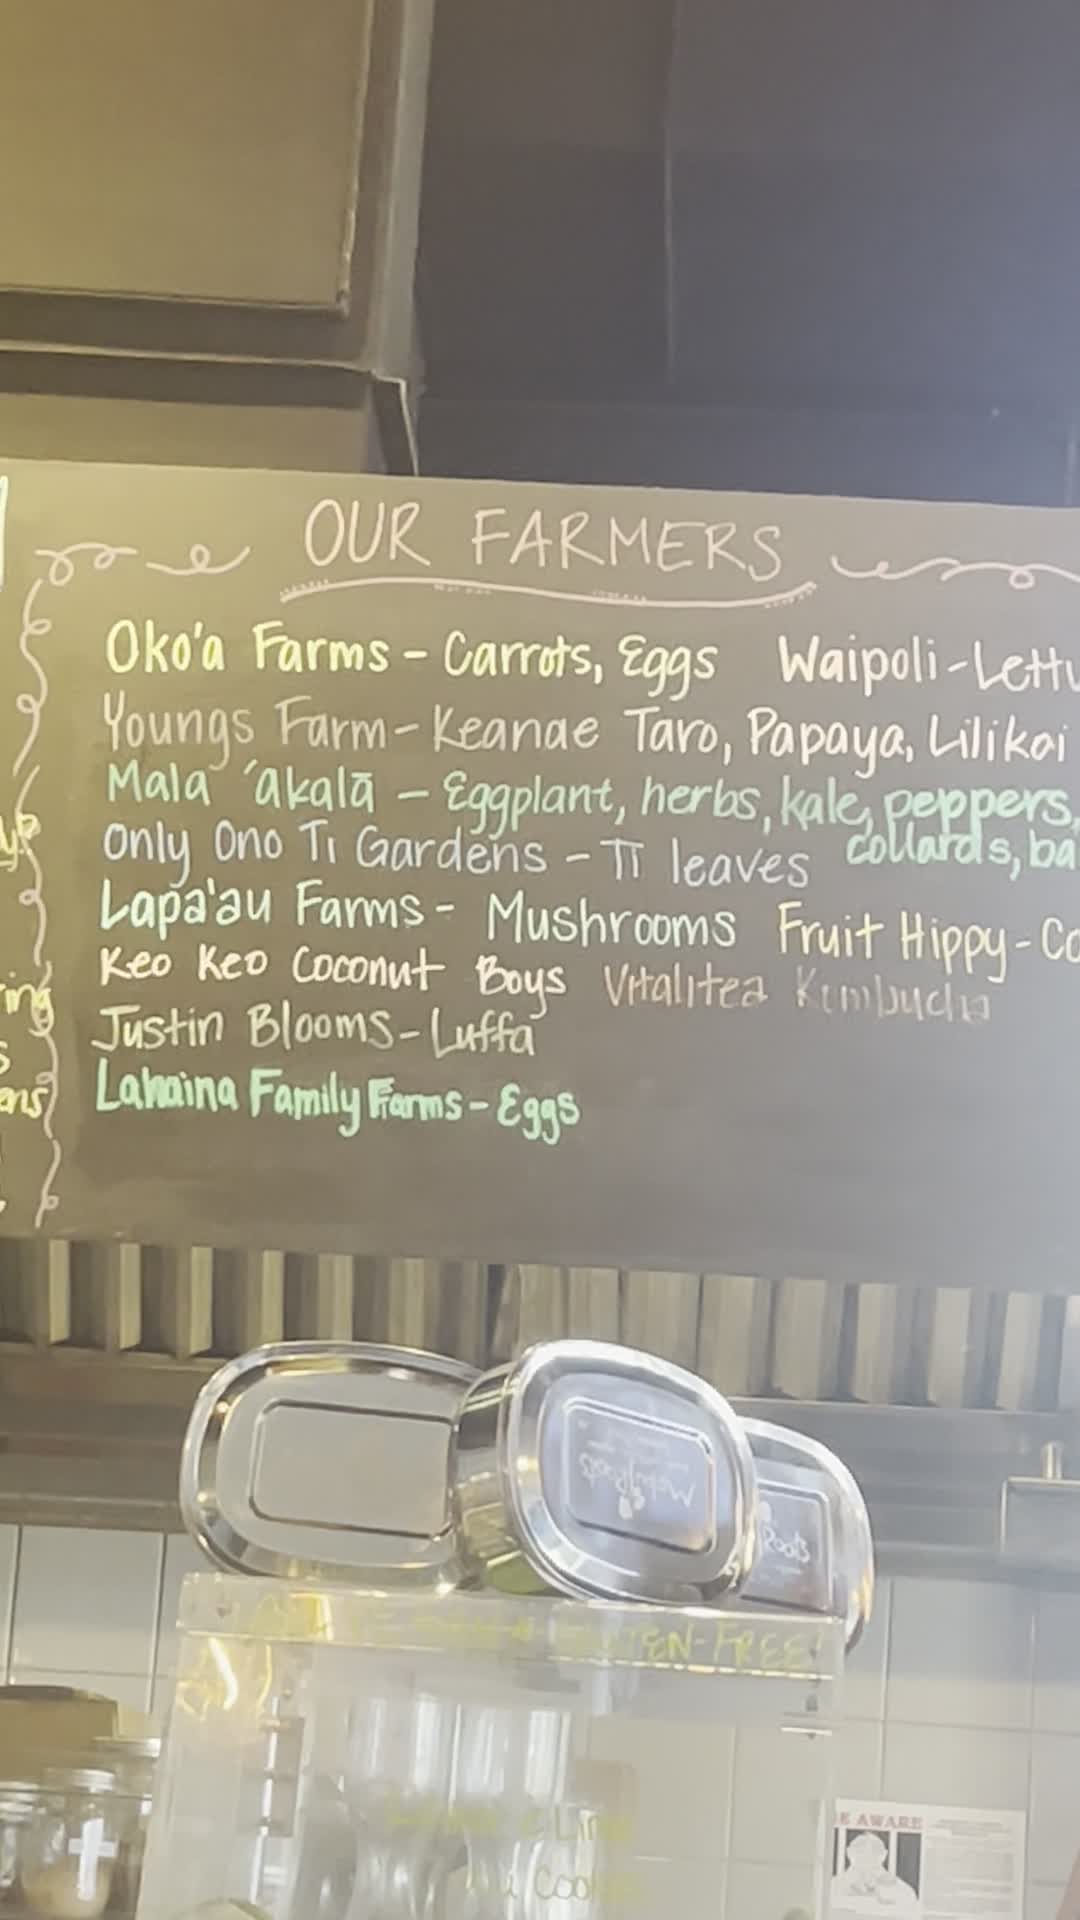 OUR FARMERS
Oko'a Farms - Carrots, Eggs Waipoli - Lettu
Youngs Farm - Keanae Taro, Papaya, Lilikoi
Mala 'akalā - Eggplant, herbs, kale, peppers,
collards, ba
Only Ono Ti Gardens - Ti leaves
Lapa'au Farms - Mushrooms Fruit Hippy - Co
Keo Keo Coconut Boys Vitalitea Kombucha
Justin Blooms - Luffa
Lahaina Family Farms - Eggs
ring
s
ens
Roots
TEN-FREE
E AWARE